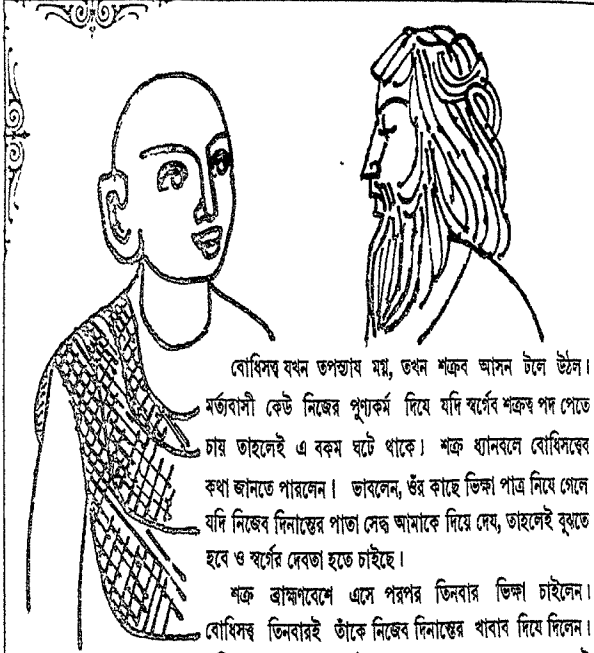 বোধিসত্ত্ব যখন তপস্যায মগ্ন, তখন শক্রব আসন টলে উঠল।
মর্ত্যবাসী কেউ নিজের পুণ্যকর্ম দিযে যদি স্বর্গেব শক্রত্ব পদ পেতে
চায় তাহলেই এ বকম ঘটে থাকে। শক্র ধ্যানবলে বোধিসত্ত্বেব
কথা জানতে পারলেন। ভাবলেন, ওঁর কাছে ভিক্ষা পাত্র নিযে গেলে
যদি নিজেব দিনান্তের পাতা সেদ্ধ আমাকে দিয়ে দেয, তাহলেই বুঝতে
হবে ও স্বর্গের দেবতা হতে চাইছে।
শক্র ব্রাহ্মণবেশে এসে পরপর তিনবার ভিক্ষা চাইলেন।
বোধিসত্ত্ব তিনবারই তাঁকে নিজেব দিনান্তের খাবাব দিযে দিলেন।